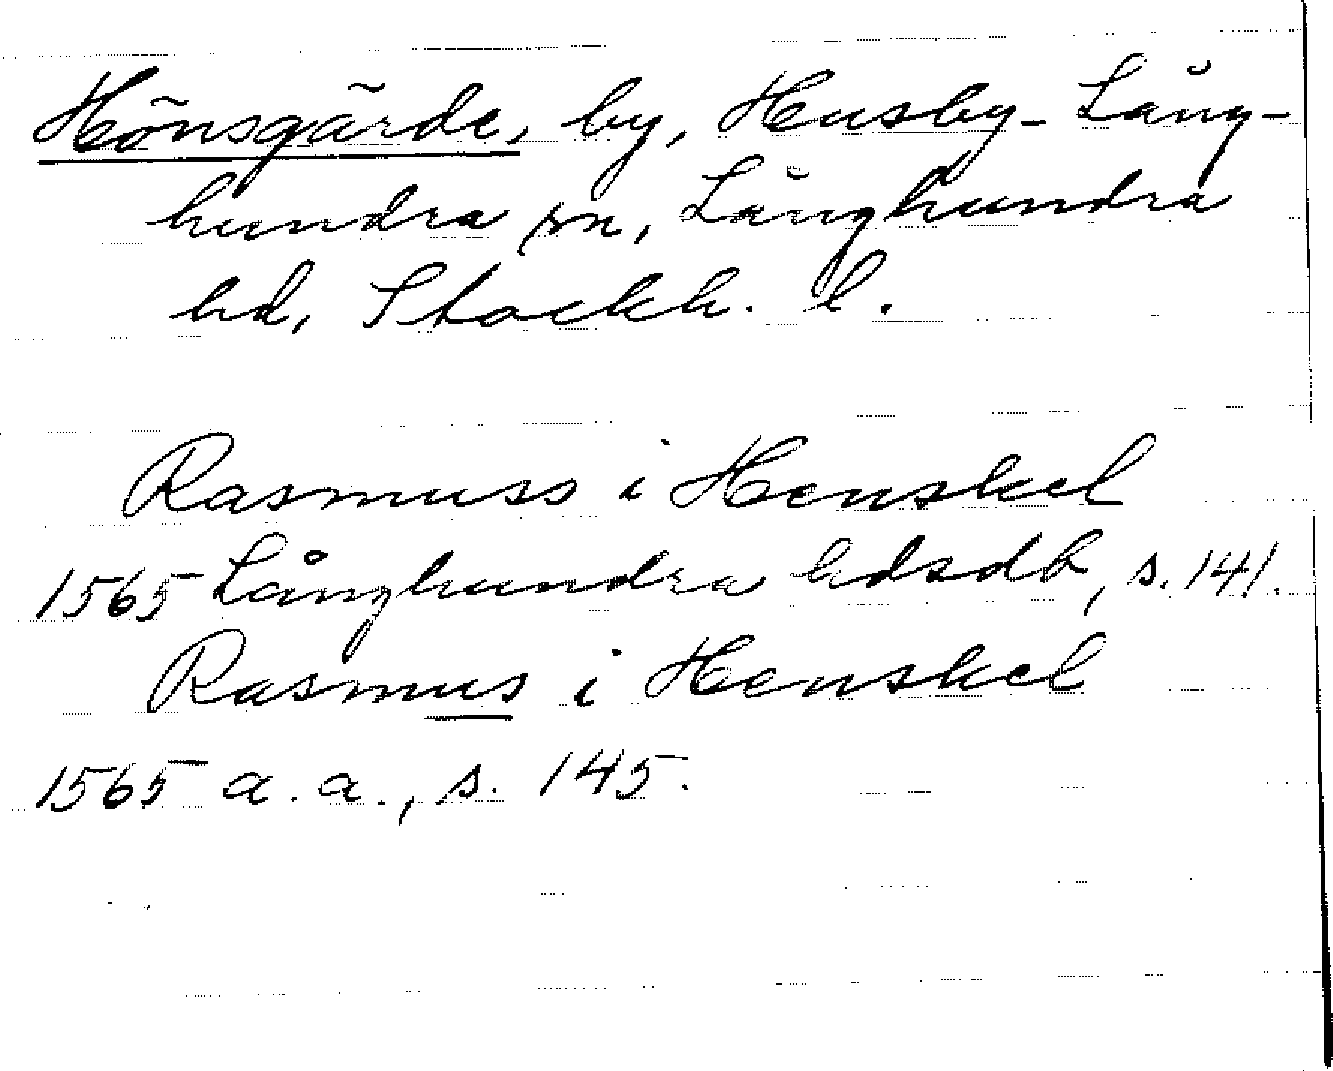 Hönsgärde, by, Husby-Lång-
hundra sn, Långhundra
hd, Stockh. l.
Rasmuss i Henskel
1565 Långhundra hdsdb, s. 141.
Rasmus i Henskel
1565 a. a., s. 145.